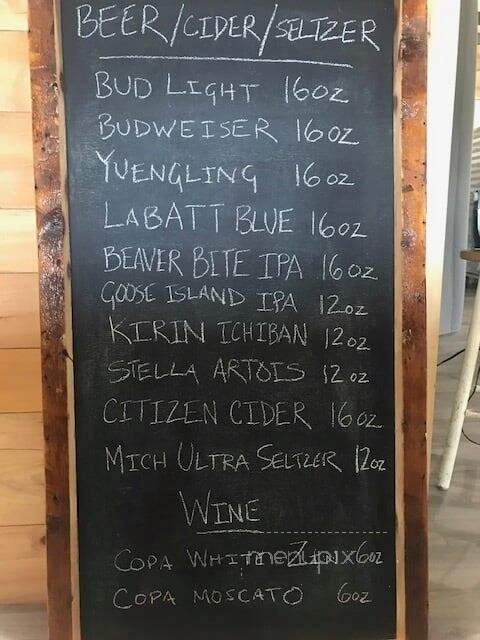 BEER/CIDER/SELTZER
BUD LIGHT 16OZ
BUDWEISER 16OZ
YUENGLING 16OZ
LABATT BLUE 16OZ
BEAVER BITE IPA 16OZ
GOOSE ISLAND IPA 12OZ
KIRIN ICHIBAN 12OZ
STELLA ARTOIS 12OZ
CITIZEN CIDER 16OZ
MICH ULTRA SELTZER 12OZ
WINE
COPA WHITE ZIN 6OZ
menupix
COPA MOSCATO 6OZ